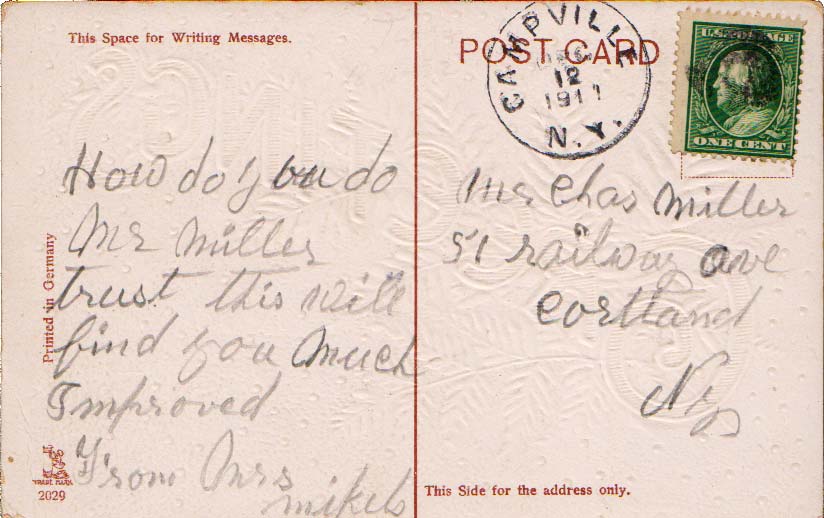 This Space for Writing Messages.
How do you do
Mr Miller
trust this will
find you much
Improved
From Mrs
Printed in Germany
TRADE MARK
2029
POST CARD
CAMPVILLE
DEC
12
1911
N.Y.
U.S. POSTAGE
ONE CENT
Mr Chas Miller
51 railway ave
Cortland
Ny
This Side for the address only.